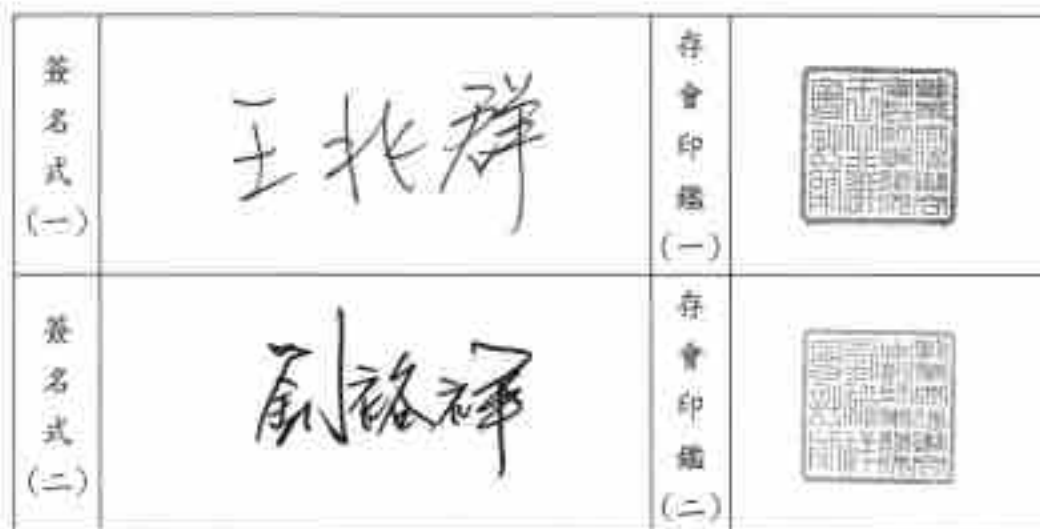 簽名式(一)
王兆群
存會印鑑(一)
簽名式(二)
劉裕祥
存會印鑑(二)